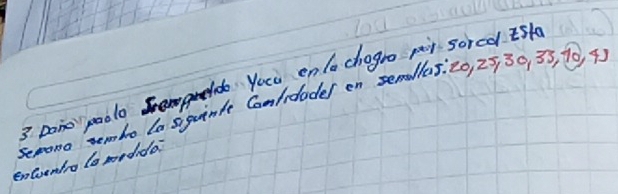 3. Daño paolo Siempre ldo Yuca en la chagra por sorcol Esta
semana sembro La siguente Cantidades en semillas: 20, 25, 30, 35, 40, 45
encuentra la medida: